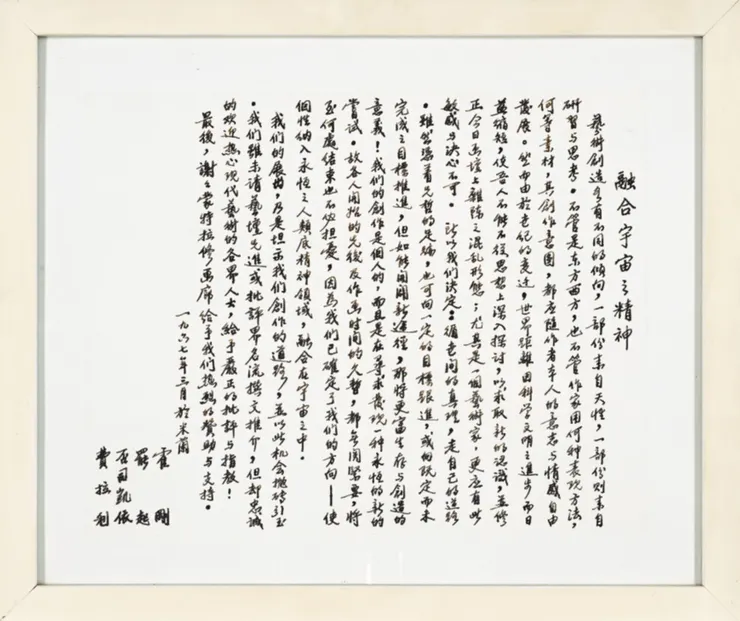 融合宇宙之精神
藝術創造自有不同的傾向，一部份來自天性，一部份則來自
研習与思考。不管是东方西方，也不管作家用何种表現方法，
何等素材，其創作意圖，都应随作者本人的意志与情感自由
發展。然而由於世紀的变迁，世界距離因科学文明之進步而日
益缩短，使吾人不能不從思想上深入探讨，以求取新的認識，並修
正今日画壇上雜陈之混乱形態；尤其是一個藝術家，更应有此
敏感与决心不可。所以我們决定：循老问的真理，走自己的道路
。雖然憑着先哲的足跡，也可向一定的目標跟進，或向既定而未
完成之目標推進，但如能闲闢新途徑，那將更富生存与創造的
意義！我們的創作是個人的，而且是在尋求發現一种永恒的新的
嘗试。故各人闲始的先後及作画时间的久暫，都無関緊要，將
至何處结束也不必担憂，因為我們已確定了我們的方向——使
個性纳入永恒之人類底精神領域，融合在宇宙之中。
我們的展出，乃是坦示我們創作的道路，並以此机会拋磚引玉
。我們雖未請藝壇先進或批評界名流撰文推介，但却忠诚
的欢迎热心現代藝術的各界人士，給予嚴正的批評与指教！
最後，謝謝蒙特拉修画廊給予我們热烈的贊助与支持。
一九六七年三月於米蘭
霍剛
蕭勤